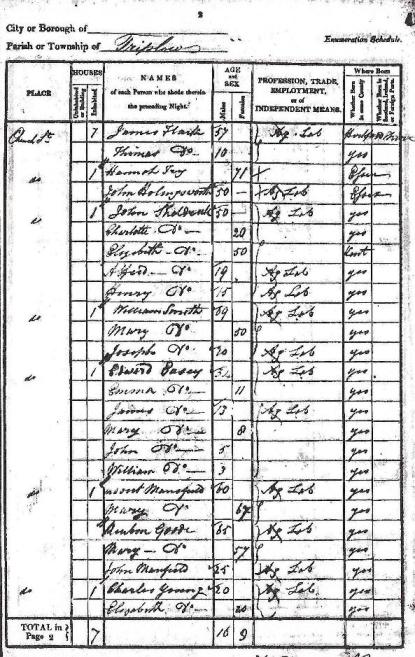 2
City or Borough of
Parish or Township of Triplow
Enumeration Schedule.
PLACE
HOUSES
Uninhabited or Building
Inhabited
NAMES
of each Person who abode therein the preceding Night.
AGE and SEX
Males
Females
PROFESSION, TRADE, EMPLOYMENT, or of INDEPENDENT MEANS.
Where Born
Whether Born in same County
Whether Born in Scotland, Ireland, or Foreign Parts
Church St. James 57 Ag Lab
Thomas Do 10 yes
do 1 Hannah 71 Essex
John 50 Ag Lab Essex
do 1 John 50 Ag Lab yes
Charlotte Do 20 yes
Elizabeth Do 50 Kent
Alfred Do 19 Ag Lab yes
Henry Do 15 Ag Lab yes
do 1 William Smith Ag Lab yes
Mary Do 50 yes
Joseph Do 20 Ag Lab yes
do 1 Edward Easey Ag Lab yes
Emma Do 11 yes
James Do 13 Ag Lab yes
Mary Do 8 yes
John Do 5 yes
William Do 3 yes
do 1 Mansfield 60 Ag Lab yes
Mary Do yes
Reuben Goode 65 Ag Lab yes
Mary Do 57 yes
John Manfield 25 Ag Lab yes
do 1 Charles 20 Ag Lab yes
Elizabeth Do 20 yes
TOTAL in Page 2 7 16 9